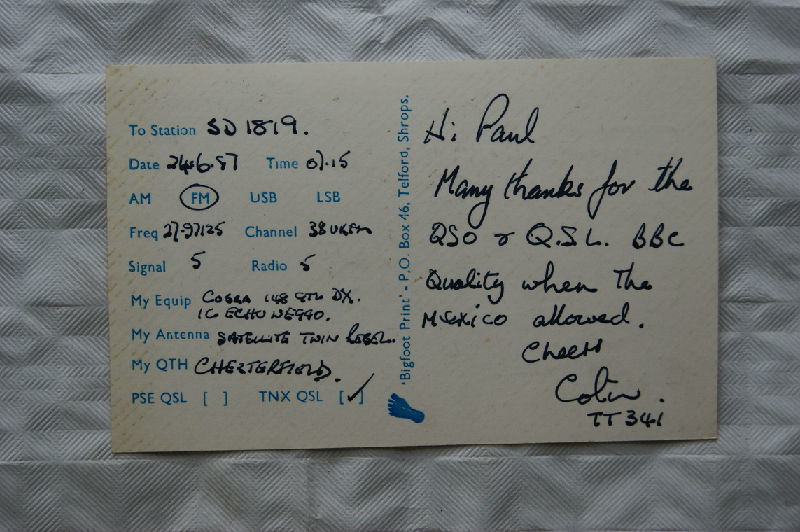 To Station SD 1819.
Date 24.6.87 Time 07.15
AM FM USB LSB
Freq 27.97125 Channel 38 UKFM
Signal 5 Radio 5
My Equip COBRA 148 GTL DX.
My Antenna SATELLITE TWIN REBEL.
My QTH CHESTERFIELD.
PSE QSL [ ] TNX QSL [✓]
'Bigfoot Print' - P.O. Box 46, Telford, Shrops.
Hi Paul
Many thanks for the
QSO & Q.S.L. BBC
Quality when the
MEXICO allowed.
Cheers
Colin.
TT 341